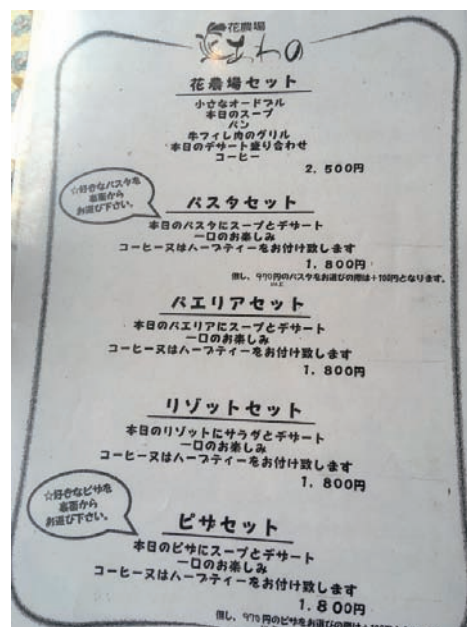 花農場
あわの
花農場セット
小さなオードブル
本日のスープ
パン
牛フィレ肉のグリル
本日のデザート盛り合わせ
コーヒー
2,500円
☆好きなパスタを
裏面から
お選び下さい。
パスタセット
本日のパスタにスープとデザート
一口のお楽しみ
コーヒー又はハーブティーをお付け致します
1,800円
但し、970円のパスタをお選びの際は+100円となります。
以上
パエリアセット
本日のパエリアにスープとデザート
一口のお楽しみ
コーヒー又はハーブティーをお付け致します
1,800円
リゾットセット
本日のリゾットにサラダとデザート
一口のお楽しみ
コーヒー又はハーブティーをお付け致します
1,800円
☆好きなピザを
裏面から
お選び下さい。
ピザセット
本日のピザにスープとデザート
一口のお楽しみ
コーヒー又はハーブティーをお付け致します
1,800円
但し、970円のピザをお選びの際は